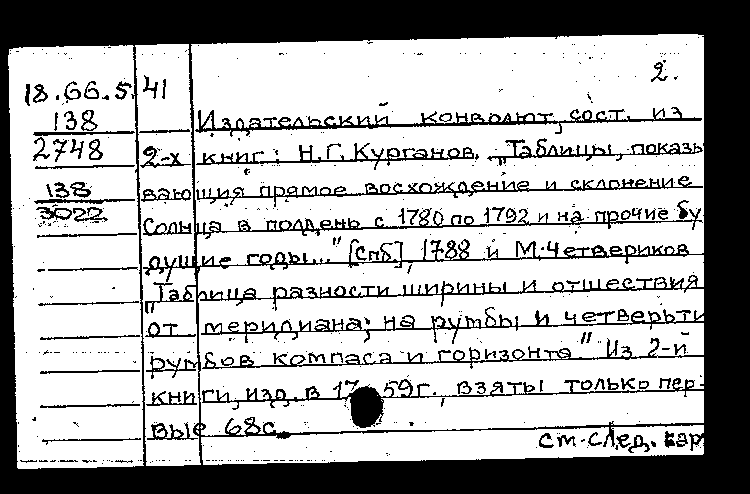 2.
18.66.5.41
138
Издательский конволют, сост. из
2748
2-х книг: Н.Г. Курганов. „Таблицы, показы
138
вающия прямое восхождение и склонение
3022
Солнца в полдень с 1780 по 1792 и на прочие бу
дущие годы..." [Спб], 1788 и М. Четвериков
„Таблица разности ширины и отшествия
от меридиана; на румбы и четверьти
румбов компаса и горизонта." Из 2-й
книги, изд. в 1759г., взяты только пер-
вые 68с.
см. след. кар